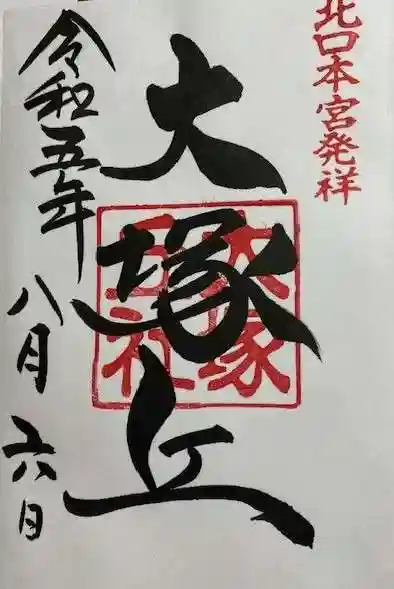 北口本宮発祥
大塚丘
大塚
丘社
令和五年
八月六日